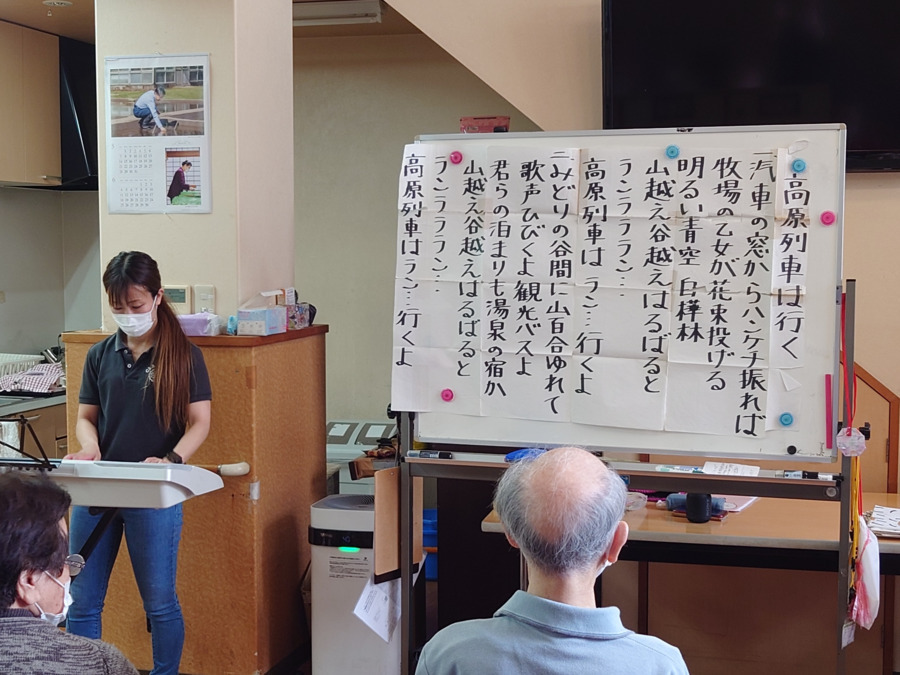 高原列車は行く
一汽車の窓からハンケチ振れば
牧場の乙女が花束投げる
明るい青空 白樺林
山越え谷越えはるばると
ランラララン…
高原列車は ラン…行くよ
二みどりの谷間に山百合ゆれて
歌声ひびくよ観光バスよ
君らの泊まりも湯泉の宿か
山越え谷越えはるばると
ランラララン…
高原列車はラン…行くよ